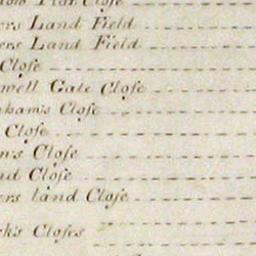 Close
ers Land Field
ers Land Field
Close
well Gate Close
nham's Close
Close
n's Close
nd Close
ers land Close
k's Closes